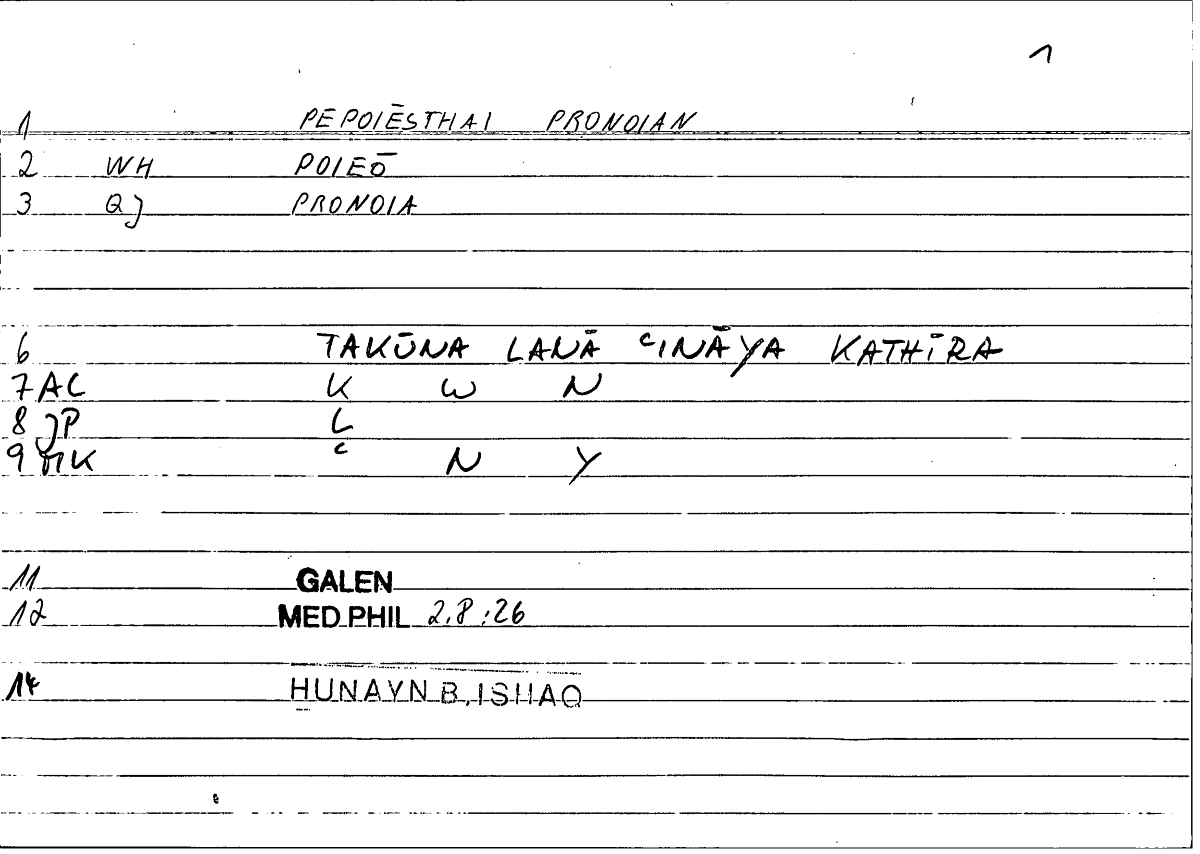 1
1 PEPOIĒSTHAI PRONOIAN
2 WH POIEŌ
3 QJ PRONOIA
6 TAKŪNA LANĀ ʿINĀYA KATHĪRA
7 AC K W N
8 JP L
9 MK ʿ N Y
11 GALEN
12 MED PHIL 2.8:26
14 HUNAYN B. ISHAQ